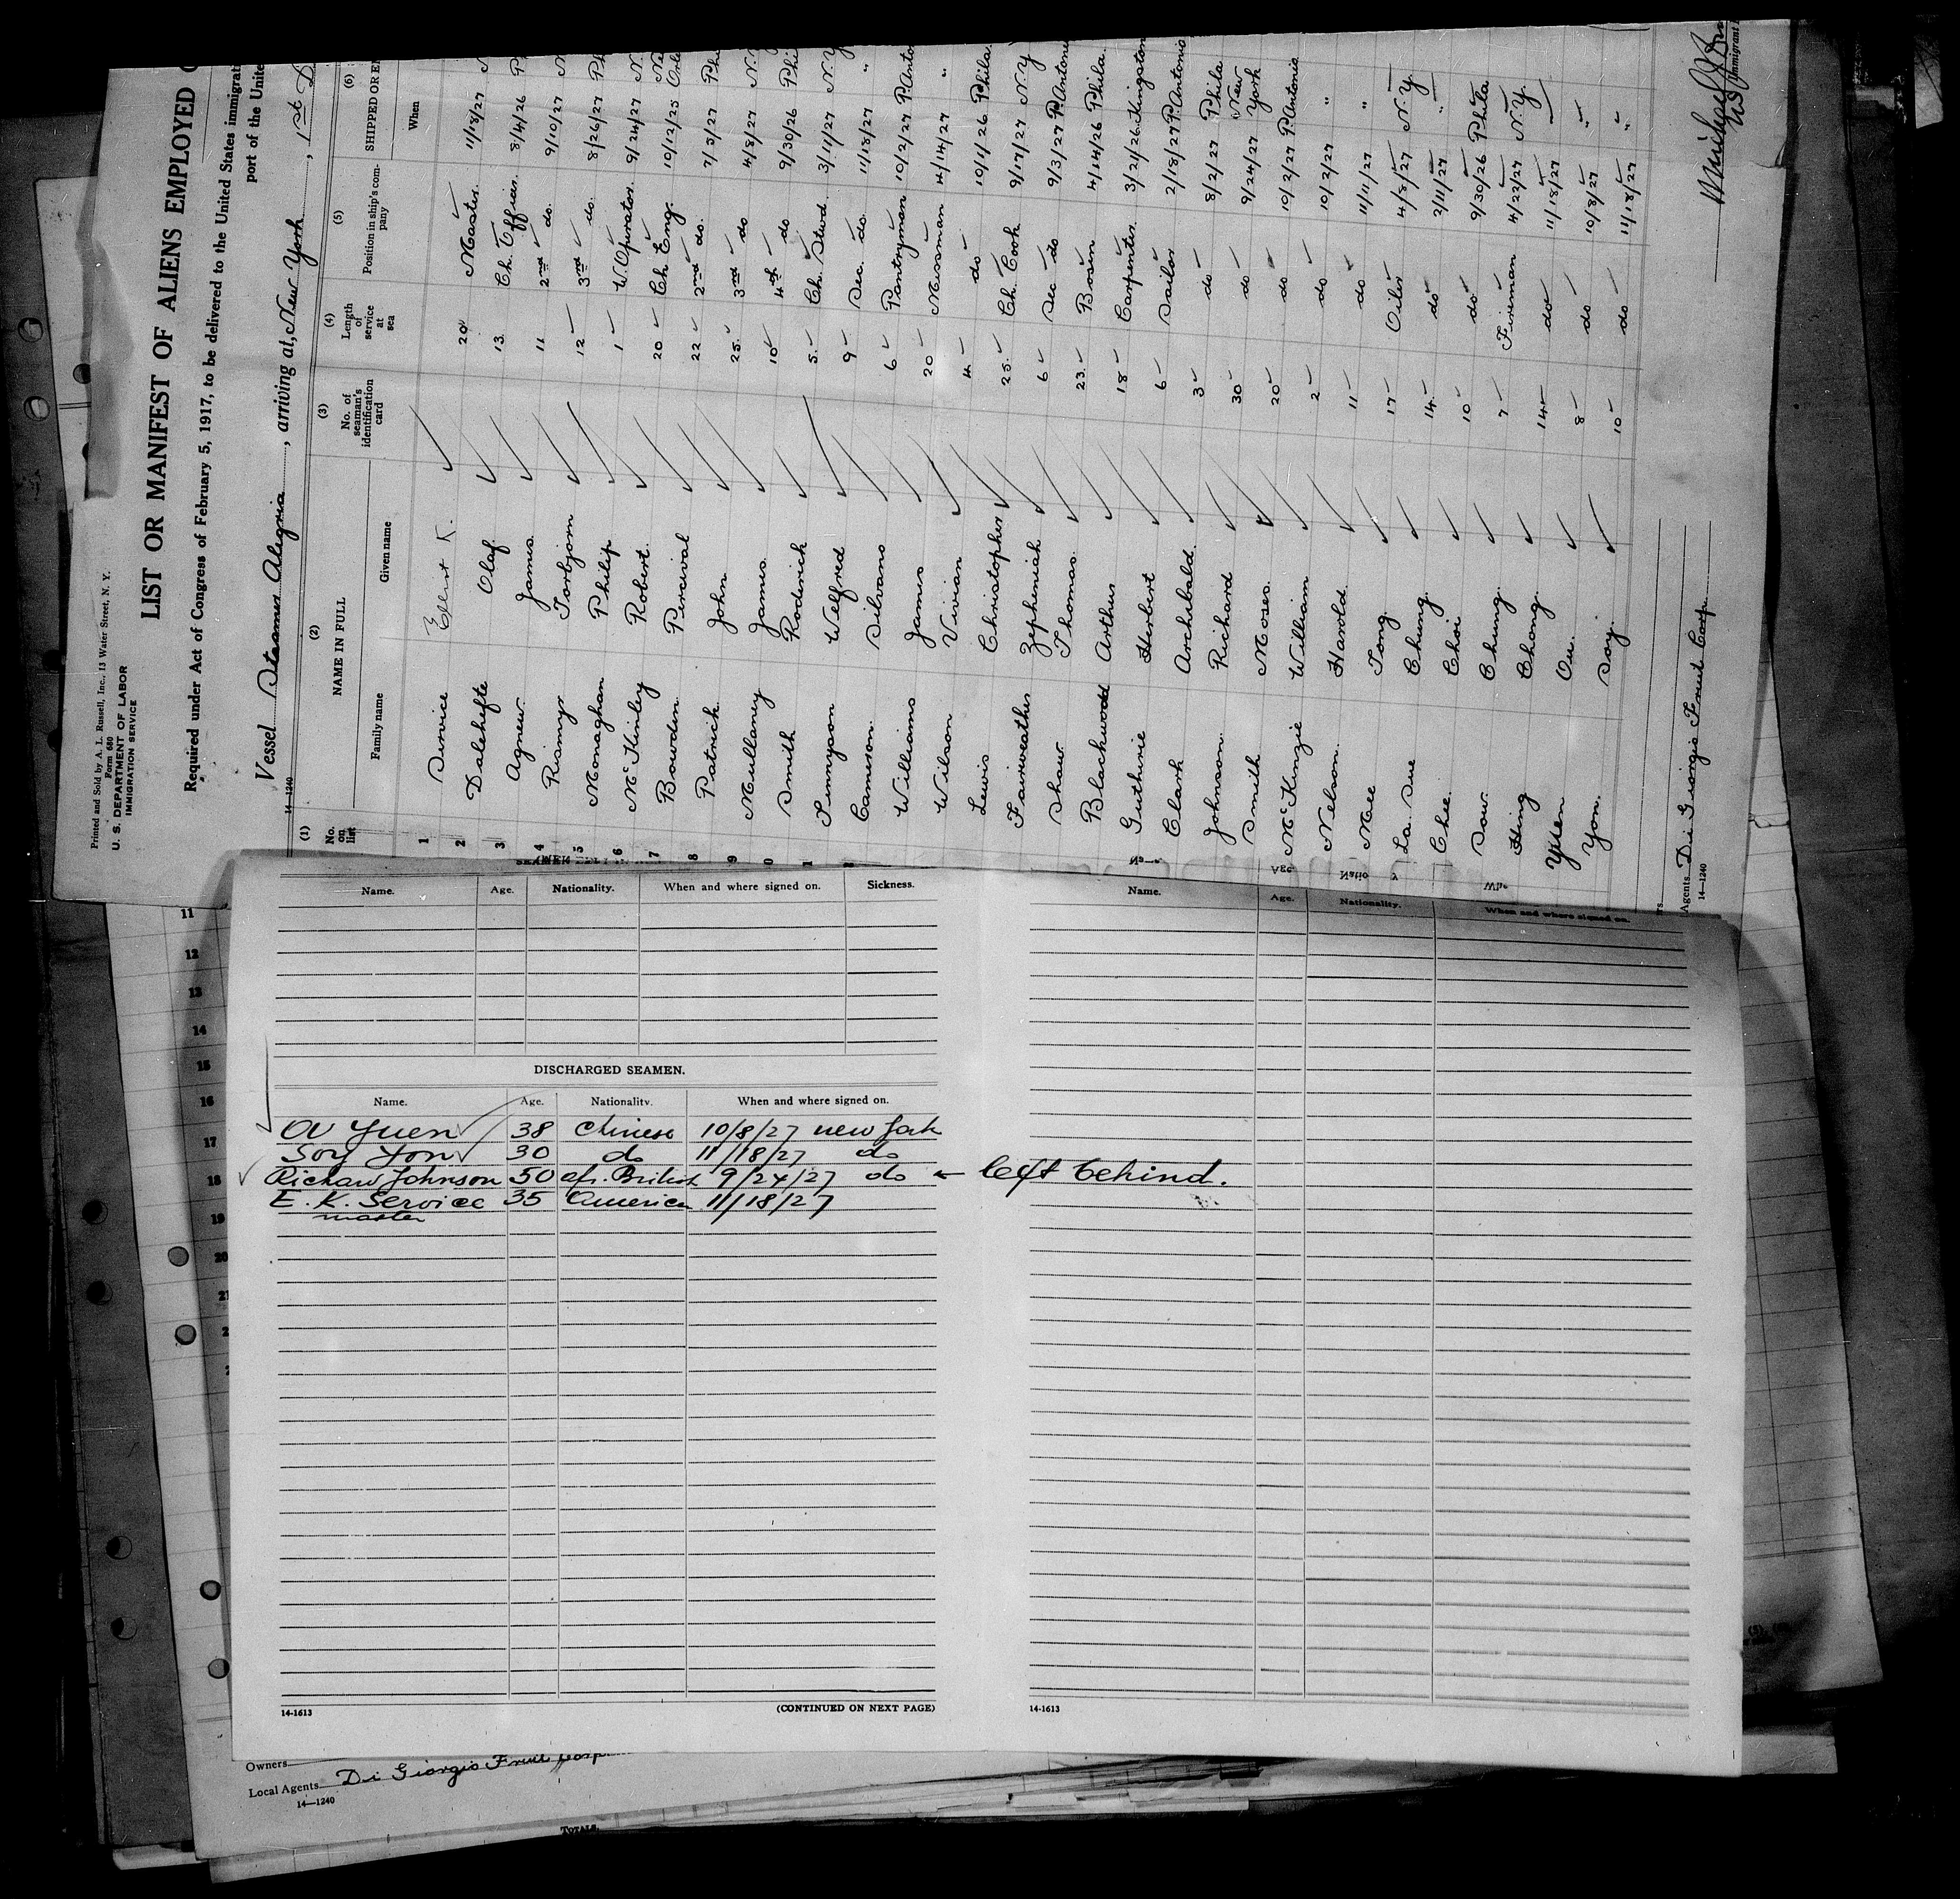 Printed and Sold by A. L. Russell, Inc., 13 Water Street, N. Y.
Form 680
U. S. DEPARTMENT OF LABOR
IMMIGRATION SERVICE
LIST OR MANIFEST OF ALIENS EMPLOYED
Required under Act of Congress of February 5, 1917, to be delivered to the United States immigrati
port of the Unite
Vessel Steamer Alegria, arriving at, New York, 1st D
14—1240
(1) (2) (3) (4) (5) (6)
No. on list NAME IN FULL No. of seaman's identification card Length of service at sea Position in ship's company SHIPPED OR EN
Family name Given name When
1 Service Elbert K. 20 Master 11/18/27 N
2 Dalehefte Olaf 13 Ch. Officer 8/4/26 P
3 Agnew James 11 2nd do. 9/10/27 N
4 Riamyr Torbjorn 12 3rd do. 8/26/27 Ph
5 Monaghan Philip 1 W. Operator 9/24/27 N.
6 McKinley Robert 20 Ch. Eng. 10/12/25 Ne Orle
7 Bowden Percival 22 2nd do. 7/3/27 Ph
8 Patrick John 25 3rd do 4/8/27 N.
9 Mullaney James 10 4th do 9/30/26 Phi
0 Smith Roderick 5 Ch. Stwd. 3/11/27 N.Y
1 Tennyson Welfred 9 Sec. do. 11/18/27 "
Cameron Silvans 6 Pantryman 10/2/27 P. Anto
Williams James 20 Messman 4/14/27 "
Wilson Vivian 4 do 10/1/26 Phila.
Lewis Christopher 25 Ch. Cook 9/17/27 N.Y
Fairweather Zepheniah 6 Sec do 9/3/27 P. Antoni
Shaw Thomas 23 Bosin 4/14/26 Phila.
Blackwood Arthur 18 Carpenter 3/21/26 Kingston
Guthrie Herbert 6 Sailor 2/18/27 P. Antonio
Clark Archibald 3 do 8/2/27 Phila
Johnson Richard 30 do 9/24/27 New York
Smith Moses 20 do 10/2/27 P. Antonio
McKinzie William 2 do 10/2/27 "
Nelson Harold 11 do 11/11/27 "
Mee Tong 17 Oiler 4/8/27 N.Y.
La. Sue Chung 14 do 2/11/27 "
Chee Choi 10 do 9/30/26 Phila
Sow Chung 7 Fireman 4/22/27 N.Y.
Hing Chong 14 do 11/18/27
Yuen Ou 8 do 10/8/27 "
Yon Soy 10 do 11/18/27 "
Agents Di Giorgio Fruit Corp.
14—1240
Immigrant
Name. Age. Nationality. When and where signed on. Sickness.
DISCHARGED SEAMEN.
Name. Age. Nationality. When and where signed on.
Ou Yuen 38 Chinese 10/8/27 new York
Soy Yon 30 do 11/18/27 do
Richard Johnson 50 afr. British 9/24/27 do ← left behind.
E. K. Service 35 America 11/18/27
master
14-1613 (CONTINUED ON NEXT PAGE)
Name. Age. Nationality. When and where signed on.
14-1613
11
12
13
14
15
16
17
18
19
20
21
Owners
Local Agents Di Giorgio Fruit Corp
14—1240
TOTALS.